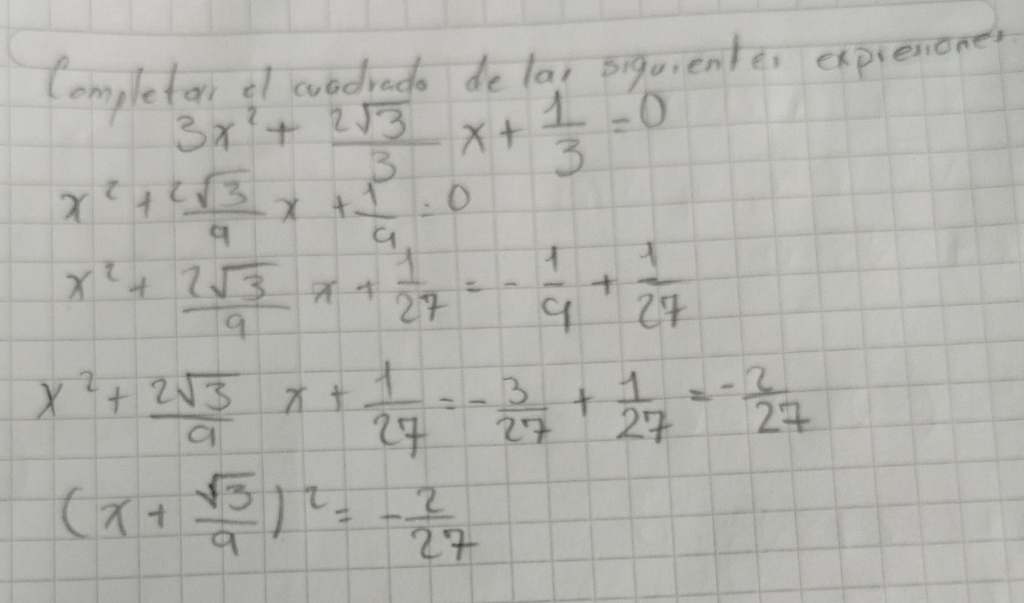 Completar el cuadrado de las siguientes expresiones
3x² + 2√3/3 x + 1/3 = 0
x² + 2√3/9 x + 1/9 = 0
x² + 2√3/9 x + 1/27 = - 1/9 + 1/27
x² + 2√3/9 x + 1/27 = - 3/27 + 1/27 = - 2/27
(x + √3/9)² = - 2/27